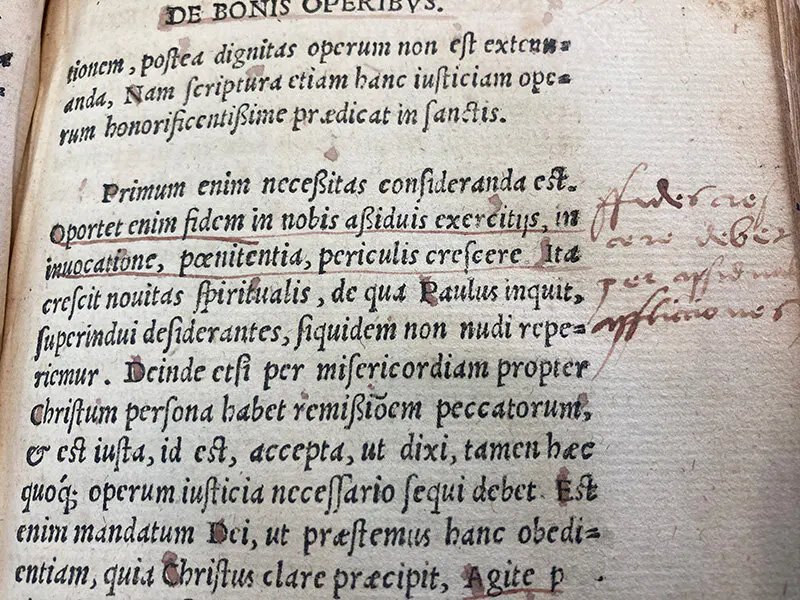 DE BONIS OPERIBVS.
tionem, postea dignitas operum non est extenu=
anda, Nam scriptura etiam hanc iusticiam ope=
rum honorificentißime prædicat in sanctis.
Primum enim neceßitas consideranda est.
Oportet enim fidem in nobis aßiduis exercitijs, in
inuocatione, pœnitentia, periculis crescere Ita
crescit nouitas spiritualis, de qua Paulus inquit,
superindui desiderantes, siquidem non nudi repe=
riemur. Deinde etsi per misericordiam propter
Christum persona habet remißiõem peccatorum,
& est iusta, id est, accepta, ut dixi, tamen hæc
quoq́; operum iusticia necessario sequi debet. Est
enim mandatum Dei, ut præstemus hanc obedi=
entiam, quia Christus clare præcipit, Agite p
ffides cres
cere debet
per assidu
afflictiones